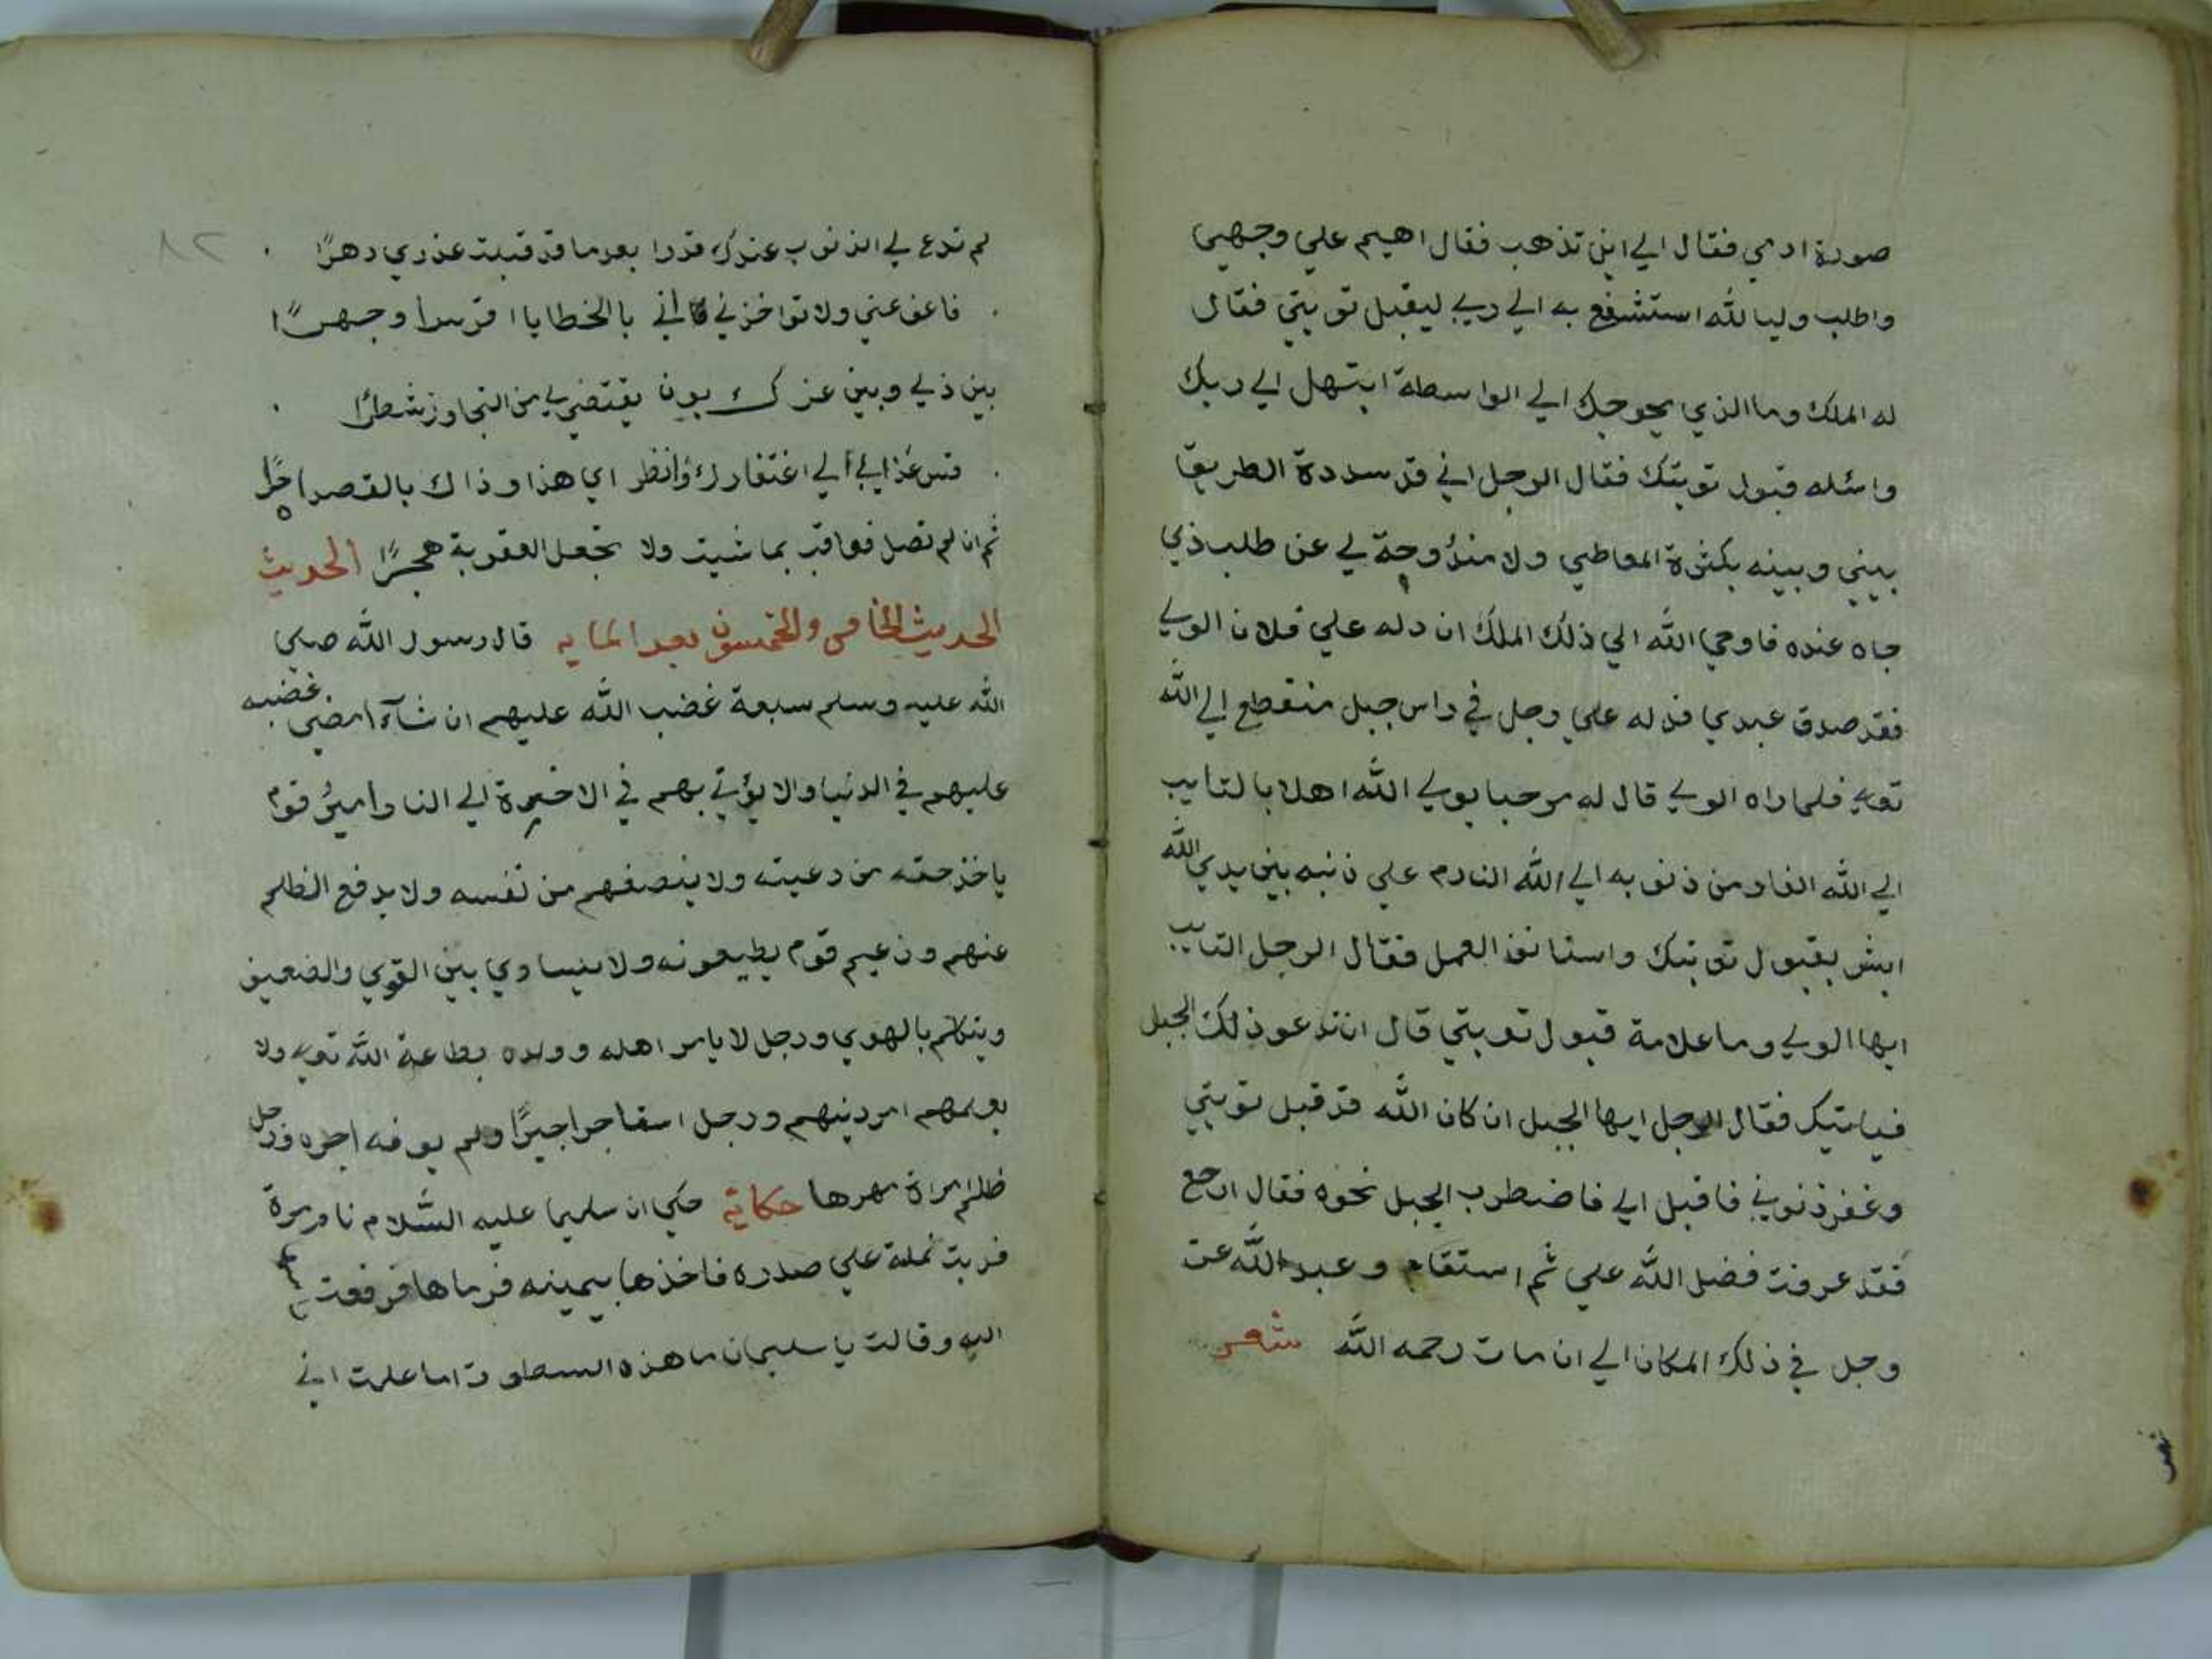 صورة ادمي فقال الي اين تذهب فقال اهيم علي وجهي
واطلب وليا لله استشفع به الي ربي ليقبل توبتي فقال
له الملك وما الذي يحوجك الي الواسطة ابتهل الي ربك
واسئله قبول توبتك فقال الرجل اني قد سددة الطريقا
بيني وبينه بكثرة المعاطي ولا مندوحة لي عن طلب ذي
جاه عنده فاوحي الله الي ذلك الملك ان دله علي فلان الولي
فقد صدق عبدي فدله علي رجل في راس جبل منقطع الي الله
تعالي فلما راه الولي قال له مرحبا بولي الله اهلا بالتايب
الي الله الفار من ذنوبه الي الله النادم علي ذنبه بين يدي الله
ابشر بقبول توبتك واستانف العمل فقال الرجل التايب
ايها الولي وما علامة قبول توبتي قال ان تدعو ذلك الجبل
فياتيك فقال الرجل ايها الجبل ان كان الله قد قبل توبتي
وغفر ذنوبي فاقبل الي فاضطرب الجبل نحوه فقال ارجع
فقد عرفت فضل الله علي ثم استقام وعبد الله عز
وجل في ذلك المكان الي ان مات رحمه الله شعر
٨٢
لم تدع لي الذنوب عندك قدرا بعد ما قد قبلت عذري دهرا
فاعف عني ولا تواخذني فاني بالخطايا اقر سرا وجهرا
بين ذلي وبين عزك بون يقتضي لي من التجاوز شطرا
قس عذابي الي اغتفارك وانظر اي هذا وذاك بالقصد احرا
ثم ان لم تصل فعاقب بما شيت ولا تجعل العقوبة هجرا الحديث
الحديث الخامس والخمسون بعد المايه قال رسول الله صلي
الله عليه وسلم سبعة غضب الله عليهم ان شآء امضي غضبه
عليهم في الدنيا والا يؤتي بهم في الاخيرة الي النار امير قوم
ياخذ حقه من رعيته ولا ينصفهم من نفسه ولا يدفع الظلم
عنهم وزعيم قوم يطيعونه ولا يساوي بين القوي والضعيف
ويتكلم بالهوي ورجل لا يامر اهله وولده بطاعة الله تعالي ولا
يعلمهم امر دينهم ورجل استاجر اجيرا ولم يوفه اجره ورجل
ظلم امراة مهرها حكاية حكي ان سليما عليه السلام نام مرة
فربت نملة علي صدره فاخذها بيمينه فرماها فرفعت
اليه وقالت يا سليمان ما هذه السطوة اما علمت اني